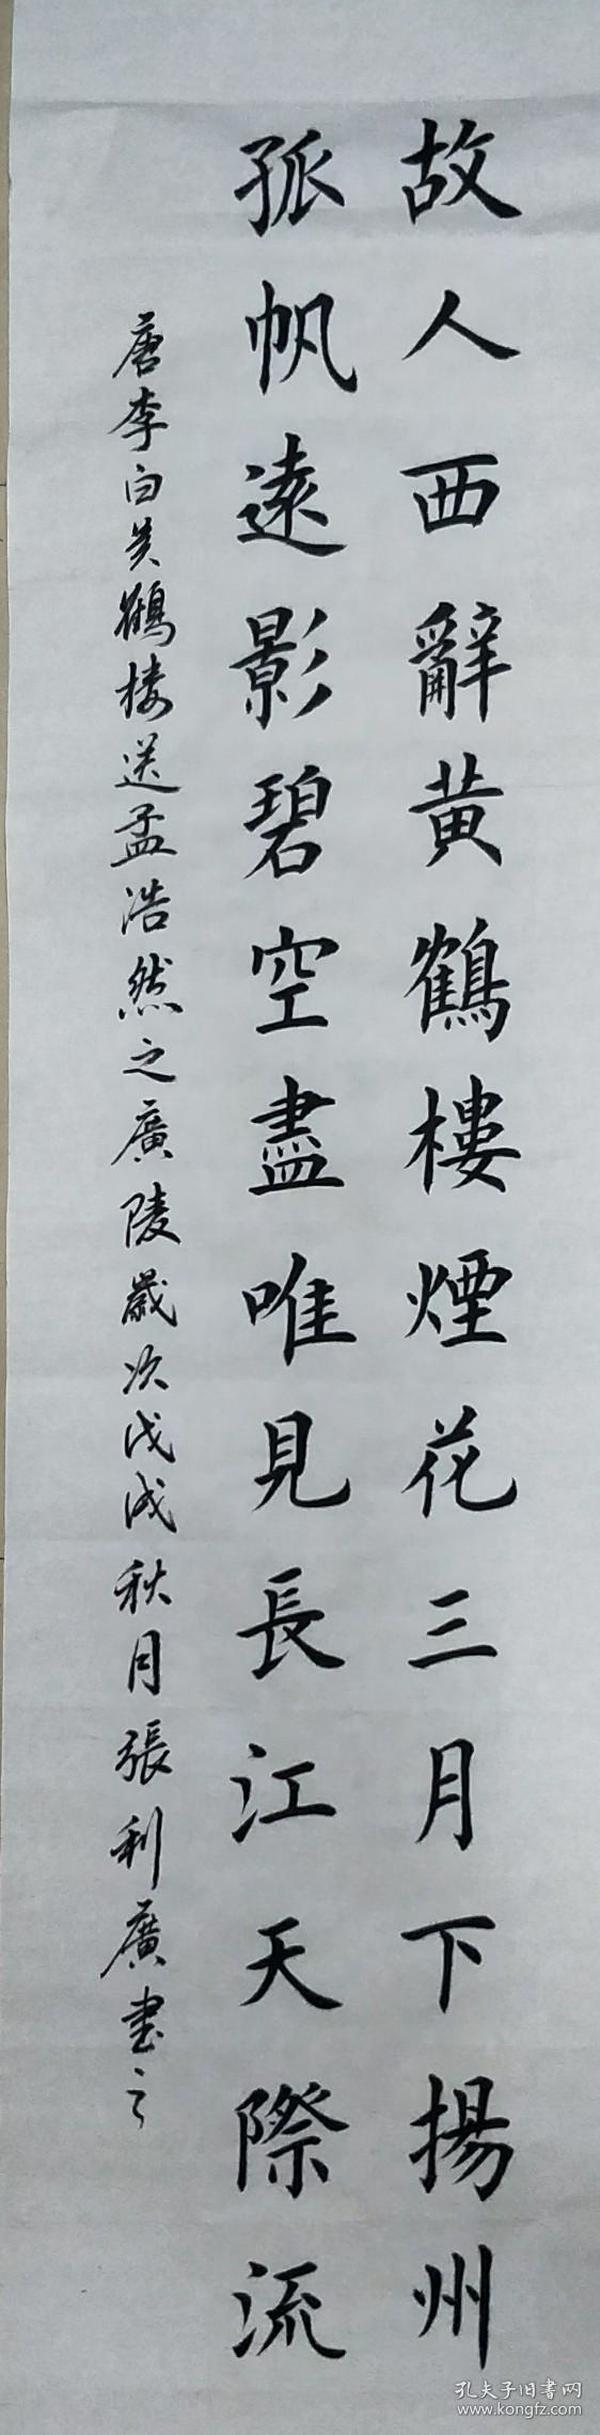 故人西辭黄鶴樓煙花三月下揚州
孤帆遠影碧空盡唯見長江天際流
唐李白黄鶴楼送孟浩然之廣陵歲次戊戌秋月張利廣書之
孔夫子旧書网
www.kongfz.com